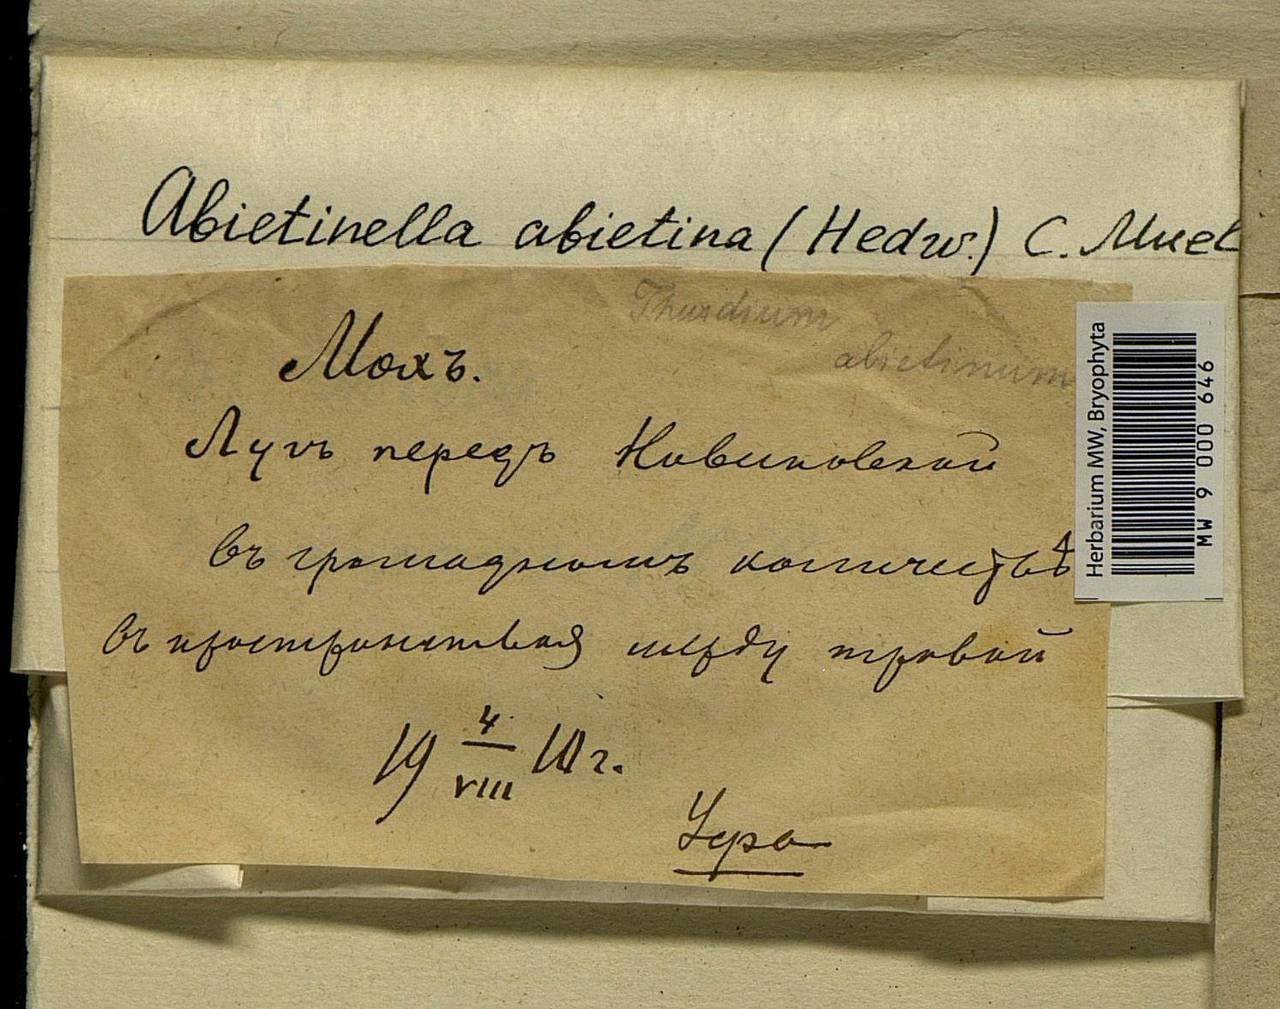 Abietinella abietina (Hedw.) C. Muel
Thuidium
abietinum
Мохъ.
Лугъ передъ Новиковской
въ громадномъ количествѣ
въ пространствах между травой
19 4/VIII 10 г.
Herbarium MW, Bryophyta
MW 9 000 646